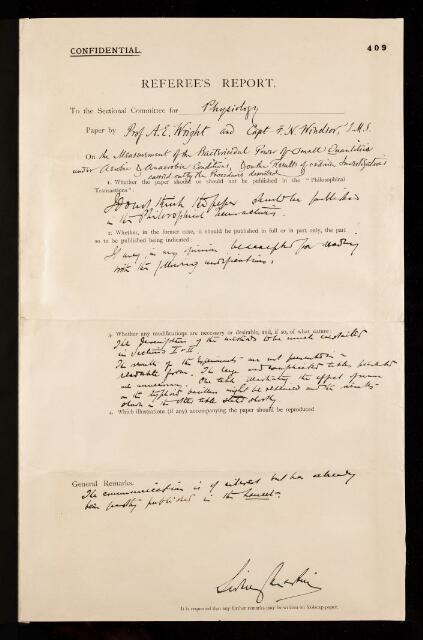 CONFIDENTIAL.
409
REFEREE'S REPORT.
To the Sectional Committee for Physiology
Paper by Prof A. E. Wright and Capt F. N. Windsor, I.M.S.
On the Measurement of the Bactericidal Power of Small Quantities
under Aerobic & Anaerobic Conditions, & on the Results of certain Investigations
carried out by the Procedures described
1. Whether the paper should or should not be published in the "Philosophical
Transactions":
I do not think the paper should be published
in the Philosophical Transactions.
2. Whether, in the former case, it should be published in full or in part only, the part
so to be published being indicated:
It may, in my opinion be accepted for reading
with the following modifications,
3. Whether any modifications are necessary or desirable, and, if so, of what nature:
The description of the methods to be much curtailed
in Sections I & II.
The results of the experiments are not presented in a
readable form. The large and complicated tables presented
are unnecessary. One table illustrating the effect of serum
on the typhoid bacillus might be retained and the results
shown in the other tables stated shortly.
4. Which illustrations (if any) accompanying the paper should be reproduced
General Remarks.
The communication is of interest but has already
been partly published in the Lancet.
Sidney Martin
It is requested that any further remarks may be written on foolscap paper.